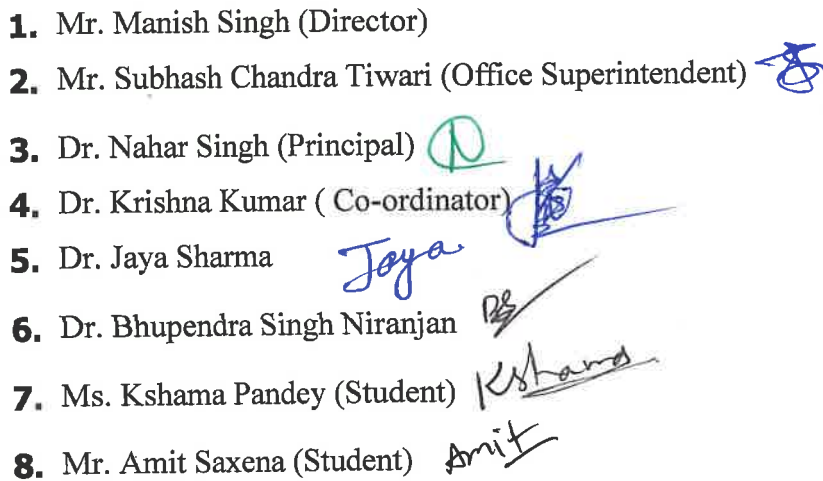 1. Mr. Manish Singh (Director)
2. Mr. Subhash Chandra Tiwari (Office Superintendent)
3. Dr. Nahar Singh (Principal) N
4. Dr. Krishna Kumar ( Co-ordinator)
5. Dr. Jaya Sharma Jaya
6. Dr. Bhupendra Singh Niranjan BS
7. Ms. Kshama Pandey (Student) Kshama
8. Mr. Amit Saxena (Student) Amit